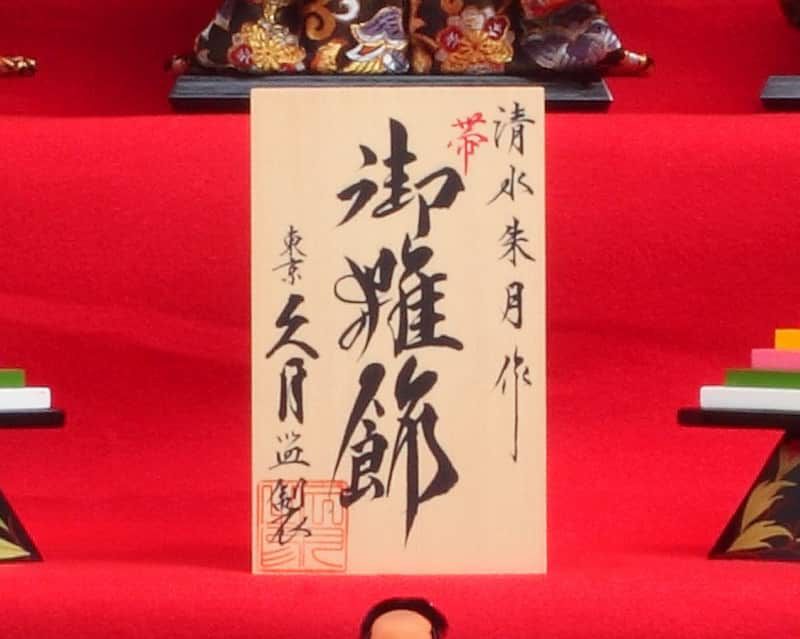 清水朱月作
帯
御雛飾
東京久月監製